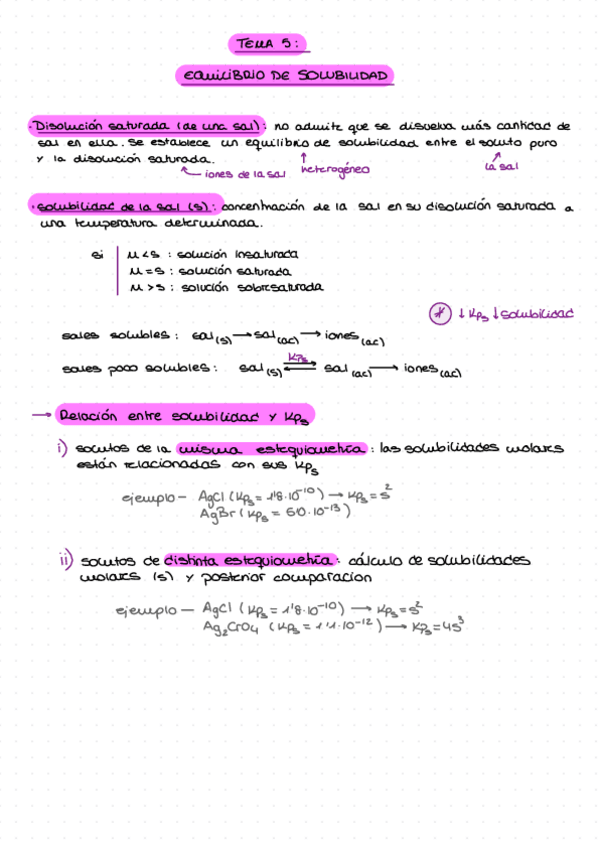 TEMA 5:
EQUILIBRIO DE SOLUBILIDAD
· Disolución saturada (de una sal): no admite que se disuelva más cantidad de
sal en ella. Se establece un equilibrio de solubilidad entre el soluto puro
y la disolución saturada.
iones de la sal
heterogéneo
la sal
· solubilidad de la sal (s): concentración de la sal en su disolución saturada a
una temperatura determinada.
si
M < s : solución insaturada
M = s : solución saturada
M > s : solución sobresaturada
* ↓ Kps ↓ solubilidad
sales solubles: sal(s) → sal(ac) → iones(ac)
sales poco solubles: sal(s) ⇌ sal(ac) → iones(ac)
Kps
→ Relación entre solubilidad y Kps
i) solutos de la misma estequiometría: las solubilidades molares
están relacionadas con sus Kps
ejemplo – AgCl (Kps = 1'8·10⁻¹⁰) → Kps = s²
AgBr (Kps = 5'0·10⁻¹³)
ii) solutos de distinta estequiometría: cálculo de solubilidades
molares (s) y posterior comparación
ejemplo – AgCl (Kps = 1'8·10⁻¹⁰) → Kps = s²
Ag₂CrO₄ (Kps = 1'1·10⁻¹²) → Kps = 4s³